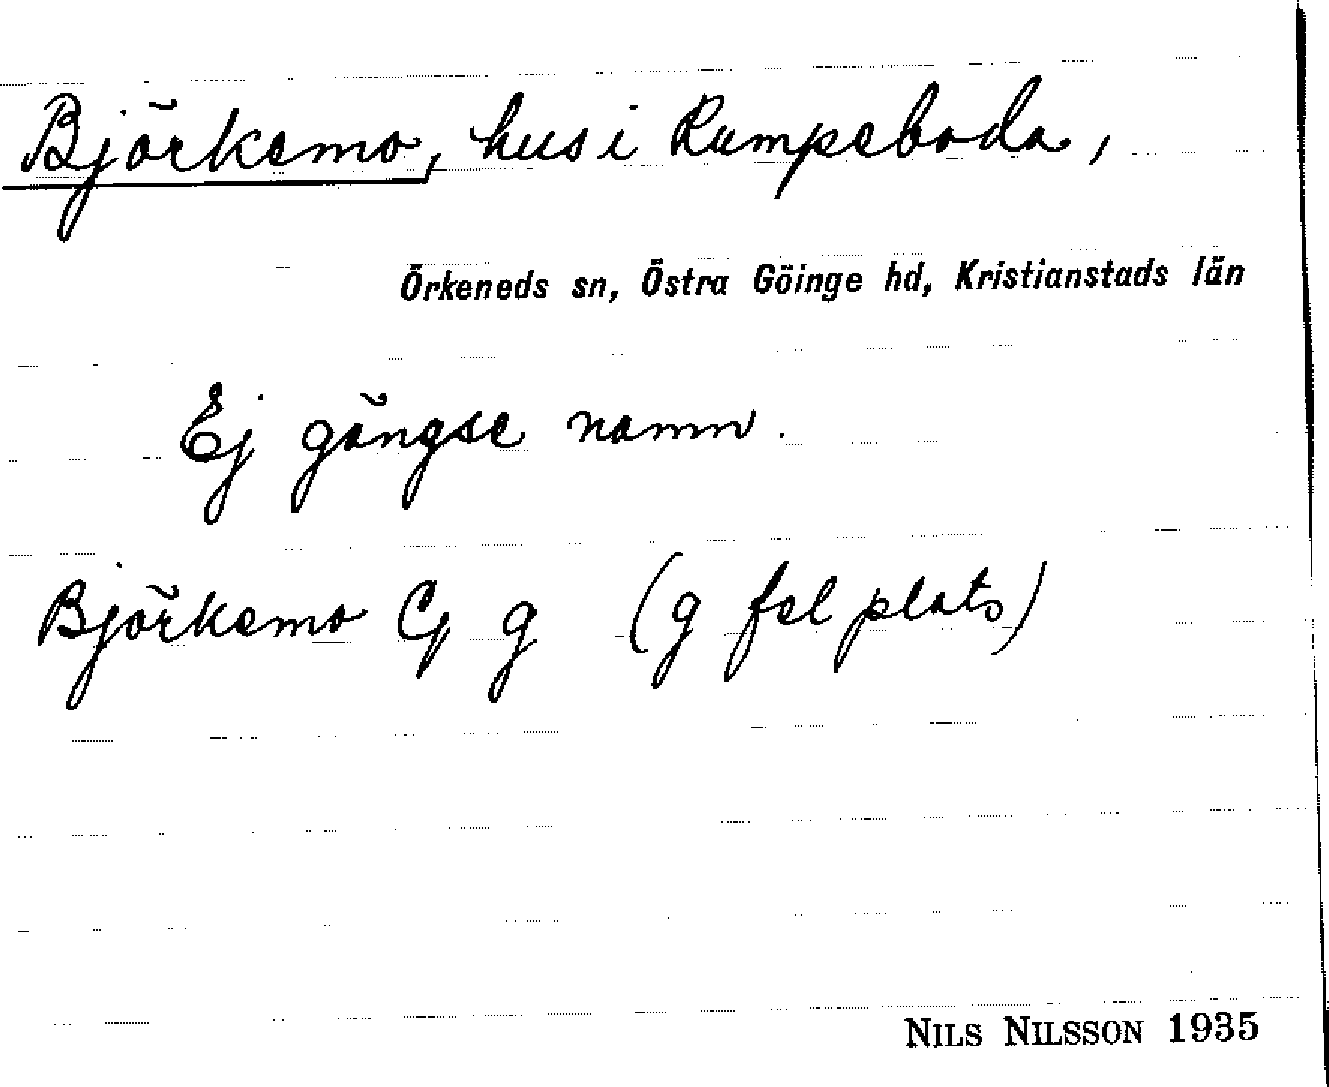 Björkemo, hus i Rumpeboda,
Örkeneds sn, Östra Göinge hd, Kristianstads län
Ej gängse namn.
Björkemo Cg g (g fel plats)
NILS NILSSON 1935